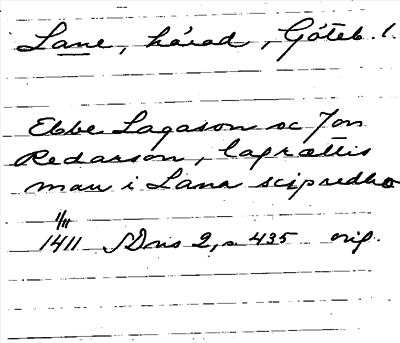 Lane, härad, Göteb. l.
Ebbe Lagason oc Jon
Redarson, lagrættis
man i Lana scipredho
1/11
1411 SDns 2, s 435 orig.